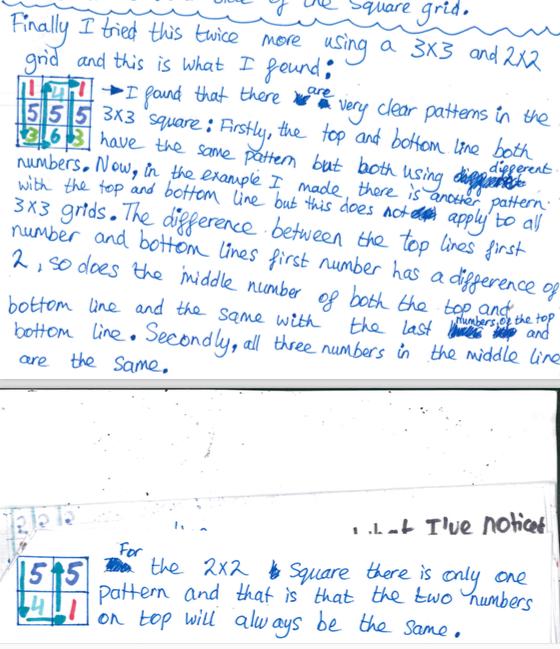 of the square grid.
Finally I tried this twice more using a 3X3 and 2X2
grid and this is what I found:
1 4 1
5 5 5
3 6 3
→ I found that there are very clear patterns in the
3X3 square: Firstly, the top and bottom line both
have the same pattern but both using different
numbers. Now, in the example I made there is another pattern
with the top and bottom line but this does not apply to all
3X3 grids. The difference between the top lines first
number and bottom lines first number has a difference of
2, so does the middle number of both the top and
bottom line and the same with the last numbers of the top and
bottom line. Secondly, all three numbers in the middle line
are the same.
I've noticed
5 5
4 1
For the 2X2 Square there is only one
pattern and that is that the two numbers
on top will always be the same.